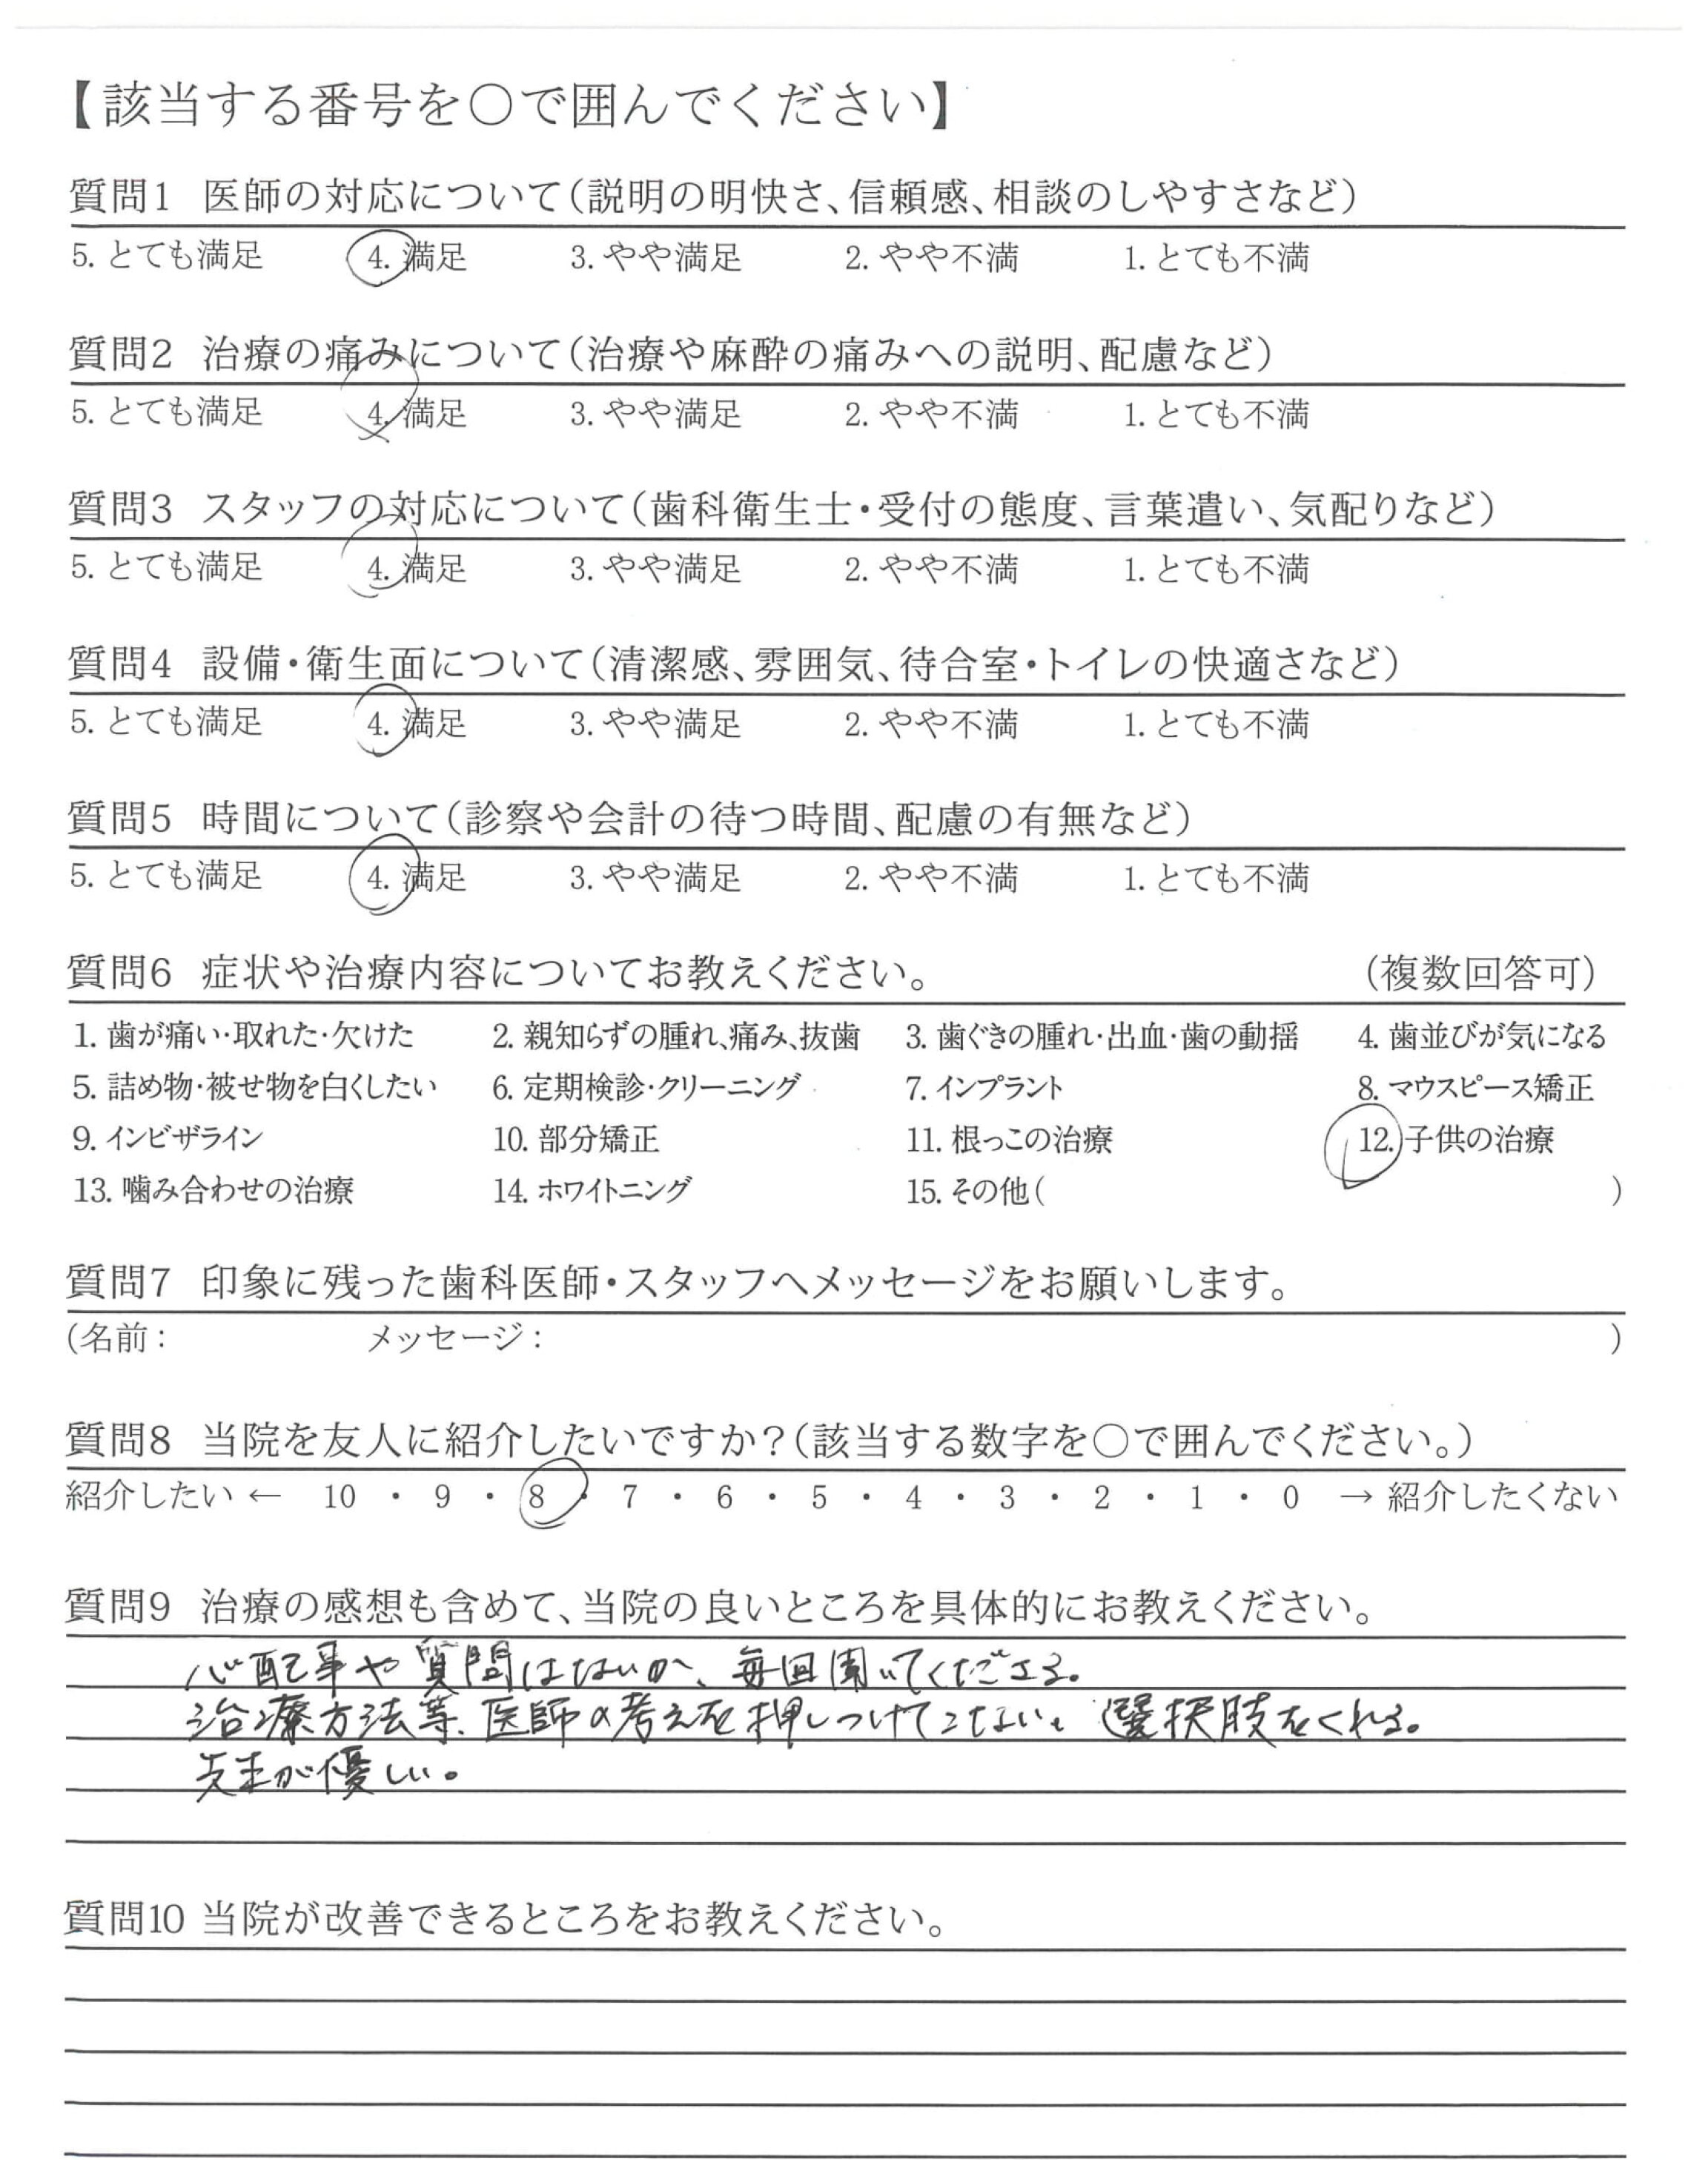 【該当する番号を〇で囲んでください】
質問1 医師の対応について(説明の明快さ、信頼感、相談のしやすさなど)
5. とても満足 4. 満足 3. やや満足 2. やや不満 1. とても不満
質問2 治療の痛みについて(治療や麻酔の痛みへの説明、配慮など)
5. とても満足 4. 満足 3. やや満足 2. やや不満 1. とても不満
質問3 スタッフの対応について(歯科衛生士・受付の態度、言葉遣い、気配りなど)
5. とても満足 4. 満足 3. やや満足 2. やや不満 1. とても不満
質問4 設備・衛生面について(清潔感、雰囲気、待合室・トイレの快適さなど)
5. とても満足 4. 満足 3. やや満足 2. やや不満 1. とても不満
質問5 時間について(診察や会計の待つ時間、配慮の有無など)
5. とても満足 4. 満足 3. やや満足 2. やや不満 1. とても不満
質問6 症状や治療内容についてお教えください。 (複数回答可)
1. 歯が痛い・取れた・欠けた 2. 親知らずの腫れ、痛み、抜歯 3. 歯ぐきの腫れ・出血・歯の動揺 4. 歯並びが気になる
5. 詰め物・被せ物を白くしたい 6. 定期検診・クリーニング 7. インプラント 8. マウスピース矯正
9. インビザライン 10. 部分矯正 11. 根っこの治療 12. 子供の治療
13. 噛み合わせの治療 14. ホワイトニング 15. その他( )
質問7 印象に残った歯科医師・スタッフへメッセージをお願いします。
(名前: メッセージ: )
質問8 当院を友人に紹介したいですか?(該当する数字を〇で囲んでください。)
紹介したい ← 10 ・ 9 ・ 8 ・ 7 ・ 6 ・ 5 ・ 4 ・ 3 ・ 2 ・ 1 ・ 0 → 紹介したくない
質問9 治療の感想も含めて、当院の良いところを具体的にお教えください。
心配事や質問はないか、毎回聞いてくださる。
治療方法等、医師の考えを押しつけてこない。選択肢をくれる。
先生が優しい。
質問10 当院が改善できるところをお教えください。